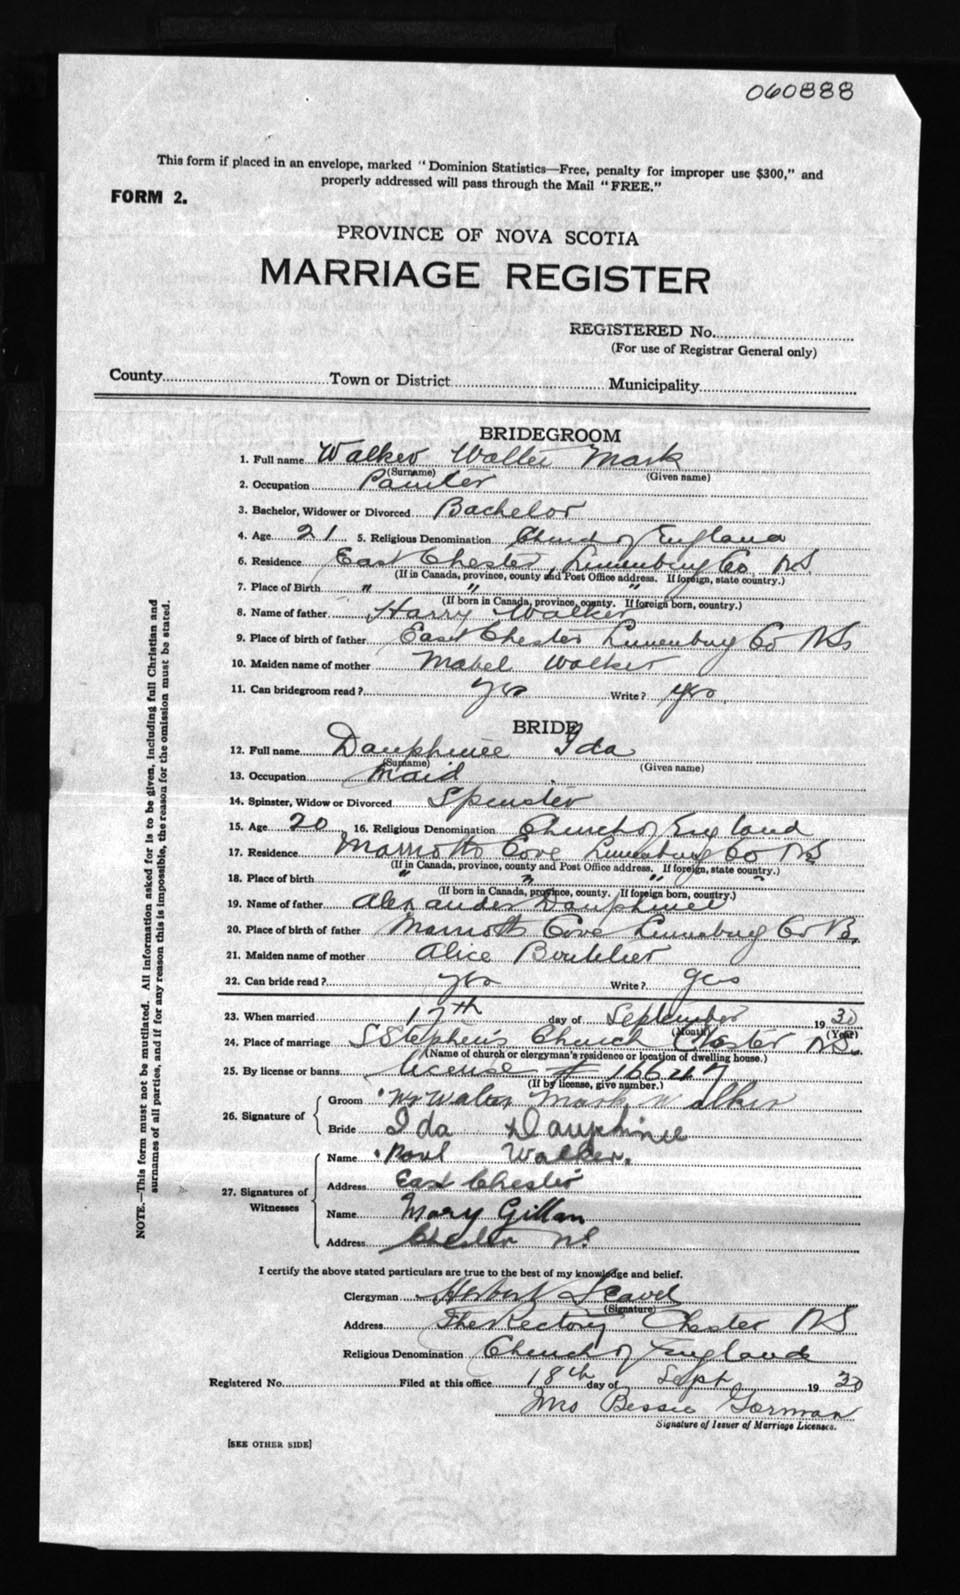 060888
This form if placed in an envelope, marked "Dominion Statistics—Free, penalty for improper use $300," and
properly addressed will pass through the Mail "FREE."
FORM 2.
PROVINCE OF NOVA SCOTIA
MARRIAGE REGISTER
REGISTERED No.
(For use of Registrar General only)
County Town or District Municipality
BRIDEGROOM
1. Full name Walker Walter Mark
(Surname) (Given name)
2. Occupation Painter
3. Bachelor, Widower or Divorced Bachelor
4. Age 21 5. Religious Denomination Church of England
6. Residence East Chester, Lunenburg Co N.S.
(If in Canada, province, county and Post Office address. If foreign, state country.)
7. Place of Birth " " "
(If born in Canada, province, county. If foreign born, country.)
8. Name of father Harry Walker
9. Place of birth of father East Chester Lunenburg Co N.S.
10. Maiden name of mother Mabel Walker
11. Can bridegroom read? yes Write? yes
BRIDE
12. Full name Dauphinee Ida
(Surname) (Given name)
13. Occupation Maid
14. Spinster, Widow or Divorced Spinster
15. Age 20 16. Religious Denomination Church of England
17. Residence Marriotts Cove Lunenburg Co N.S.
(If in Canada, province, county and Post Office address. If foreign, state country.)
18. Place of birth " " " "
(If born in Canada, province, county. If foreign born, country.)
19. Name of father Alexander Dauphinee
20. Place of birth of father Marriotts Cove Lunenburg Co N.S.
21. Maiden name of mother Alice Boutilier
22. Can bride read? yes Write? yes
23. When married 17th day of September 1930
(Month) (Year)
24. Place of marriage S Stephen's Church Chester N.S.
(Name of church or clergyman's residence or location of dwelling house.)
25. By license or banns license # 16647
(If by license, give number.)
26. Signature of
Groom Walter Mark Walker
Bride Ida Dauphinee
27. Signatures of Witnesses
Name Paul Walker.
Address East Chester
Name Mary Gillan
Address Chester N.S.
I certify the above stated particulars are true to the best of my knowledge and belief.
Clergyman Herbert
(Signature)
Address The Rectory Chester N.S.
Religious Denomination Church of England
Registered No. Filed at this office 18th day of Sept 1930
Mrs Bessie Gorman
Signature of Issuer of Marriage Licenses.
[SEE OTHER SIDE]
NOTE.—This form must not be mutilated. All information asked for is to be given, including full Christian and
surnames of all parties, and if for any reason this is impossible, the reason for the omission must be stated.